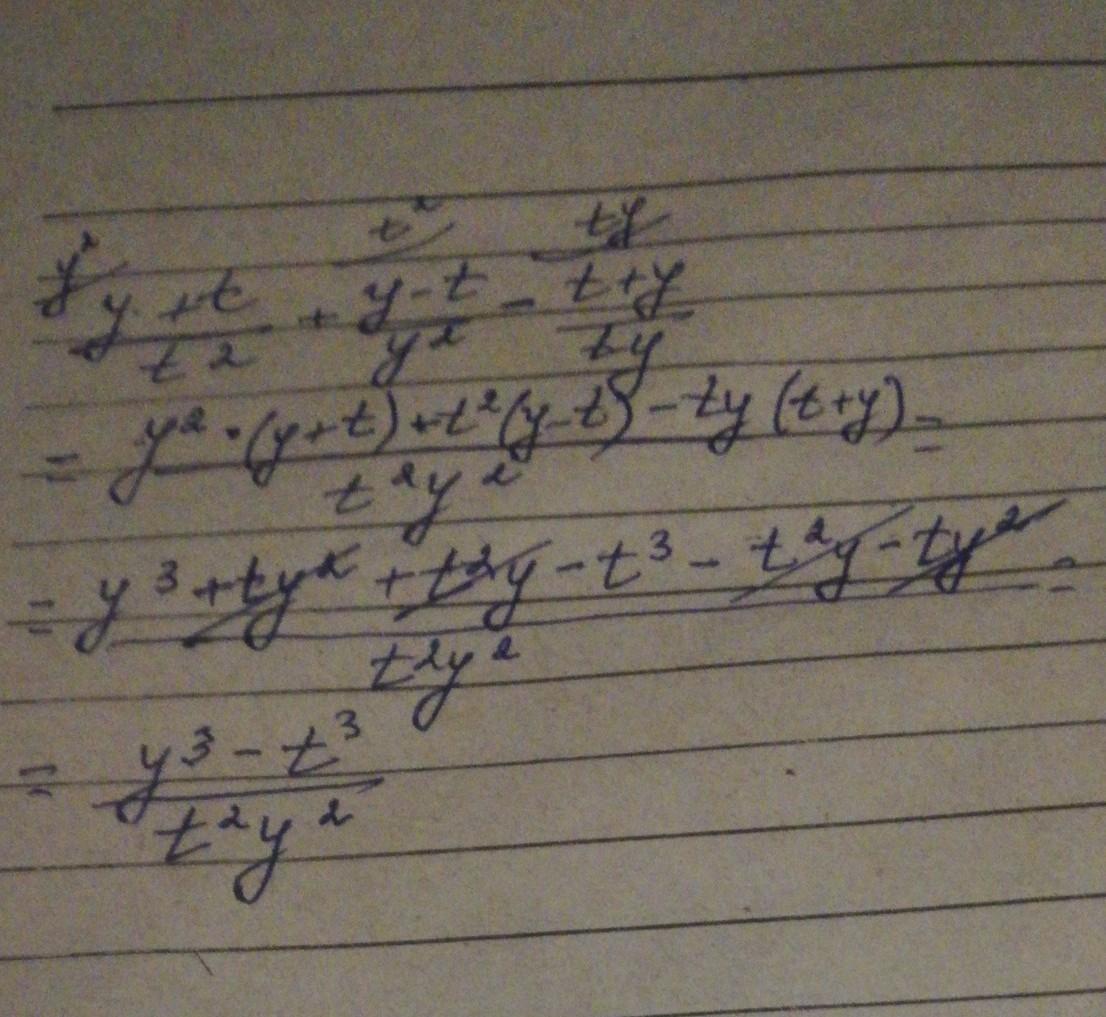 y² t² ty
y+t/t² + y-t/y² - t+y/ty
= y²·(y+t)+t²(y-t)-ty(t+y)/t²y² =
= y³+ty²+t²y-t³-t²y-ty²/t²y² =
= y³-t³/t²y²